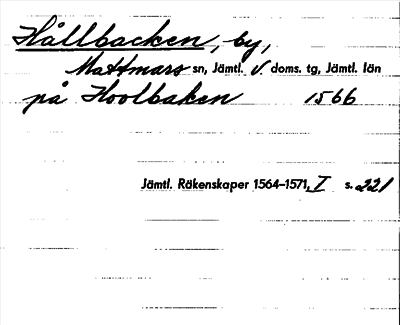 Hållbacken, by,
Mattmars sn, Jämtl. v. doms. tg, Jämtl. län
på Hoolbaken 1566
Jämtl. Räkenskaper 1564–1571, I s. 221